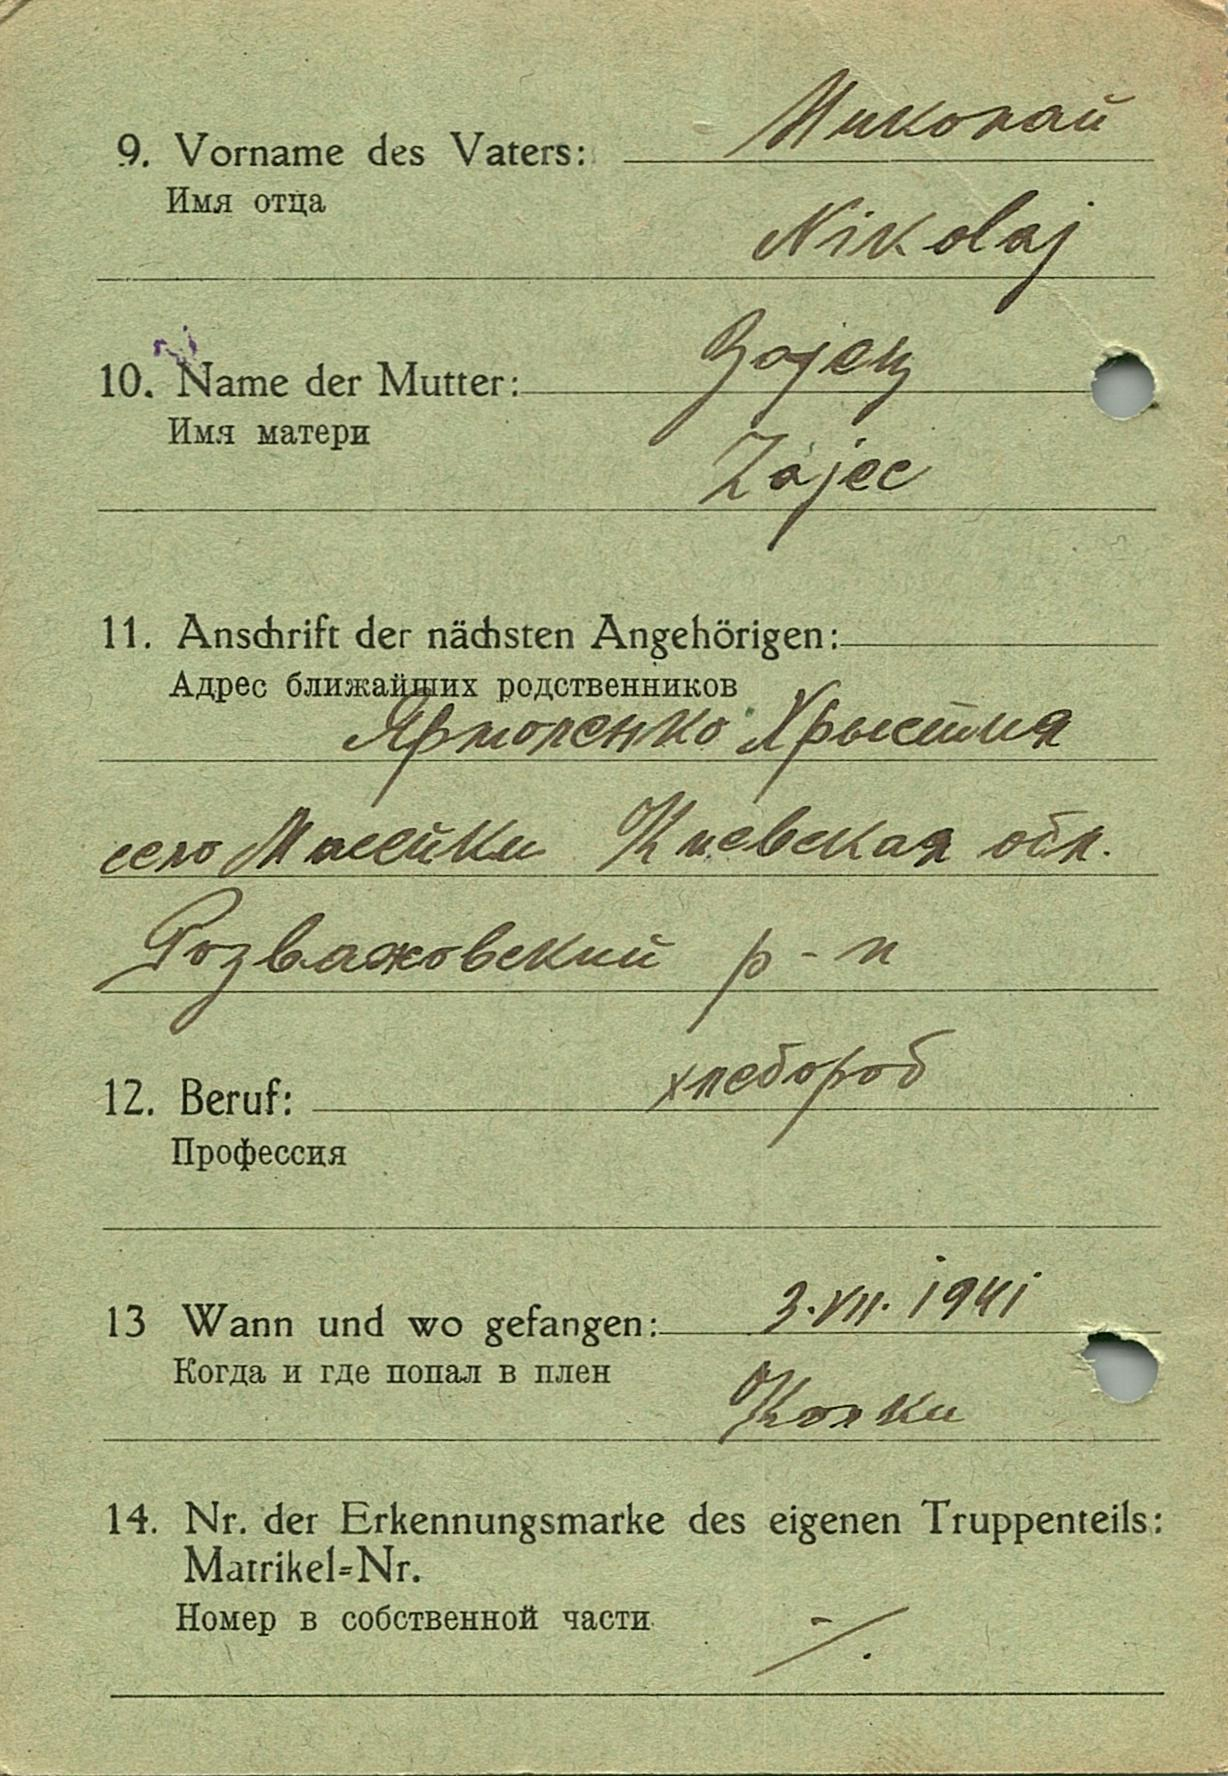 9. Vorname des Vaters: Миколай
Имя отца
Nikolaj
10. Name der Mutter: Зајец
Имя матери
Zajec
11. Anschrift der nächsten Angehörigen:
Адрес ближайших родственников
Ярмоленко Хрыстия
село Мусейки Киевская обл.
Розважовский р-н
12. Beruf: хлебороб
Профессия
13 Wann und wo gefangen: 3.VII.1941
Когда и где попал в плен
Колки
14. Nr. der Erkennungsmarke des eigenen Truppenteils:
Matrikel=Nr.
Номер в собственной части
-/.